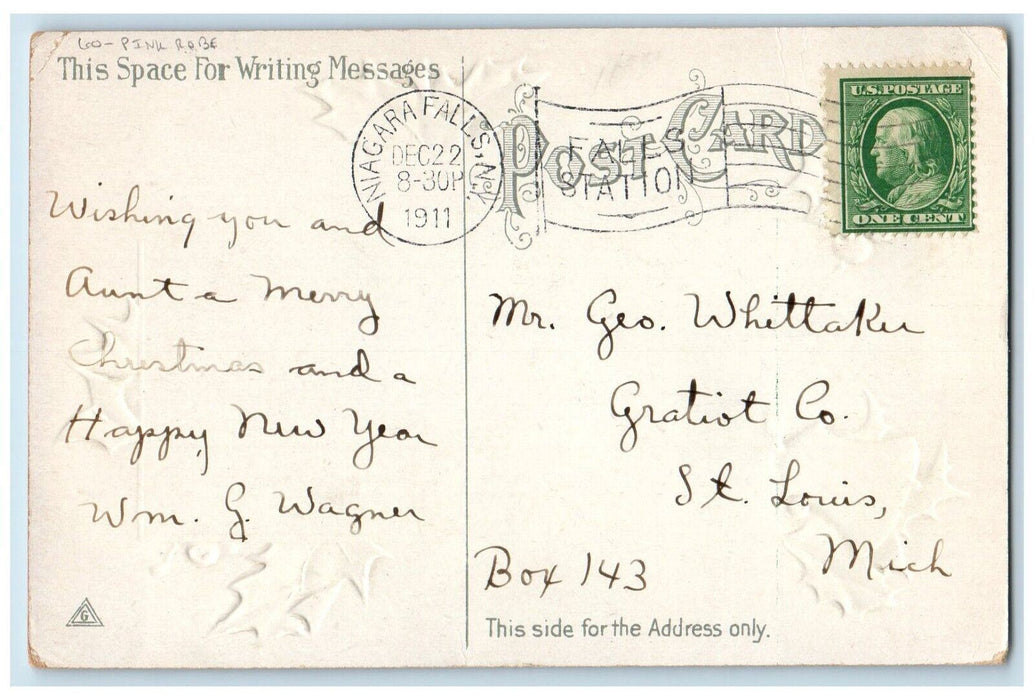 60 - PINK ROBE
This Space For Writing Messages
NIAGARA FALLS, N.Y.
DEC 22
8-30P
1911
POST CARD
FALLS
STATION
U.S. POSTAGE
ONE CENT
Wishing you and
Aunt a Merry
Christmas and a
Happy New Year
Wm. G. Wagner
G
Mr. Geo. Whittaker
Gratiot Co.
St. Louis,
Mich
Box 143
This side for the Address only.